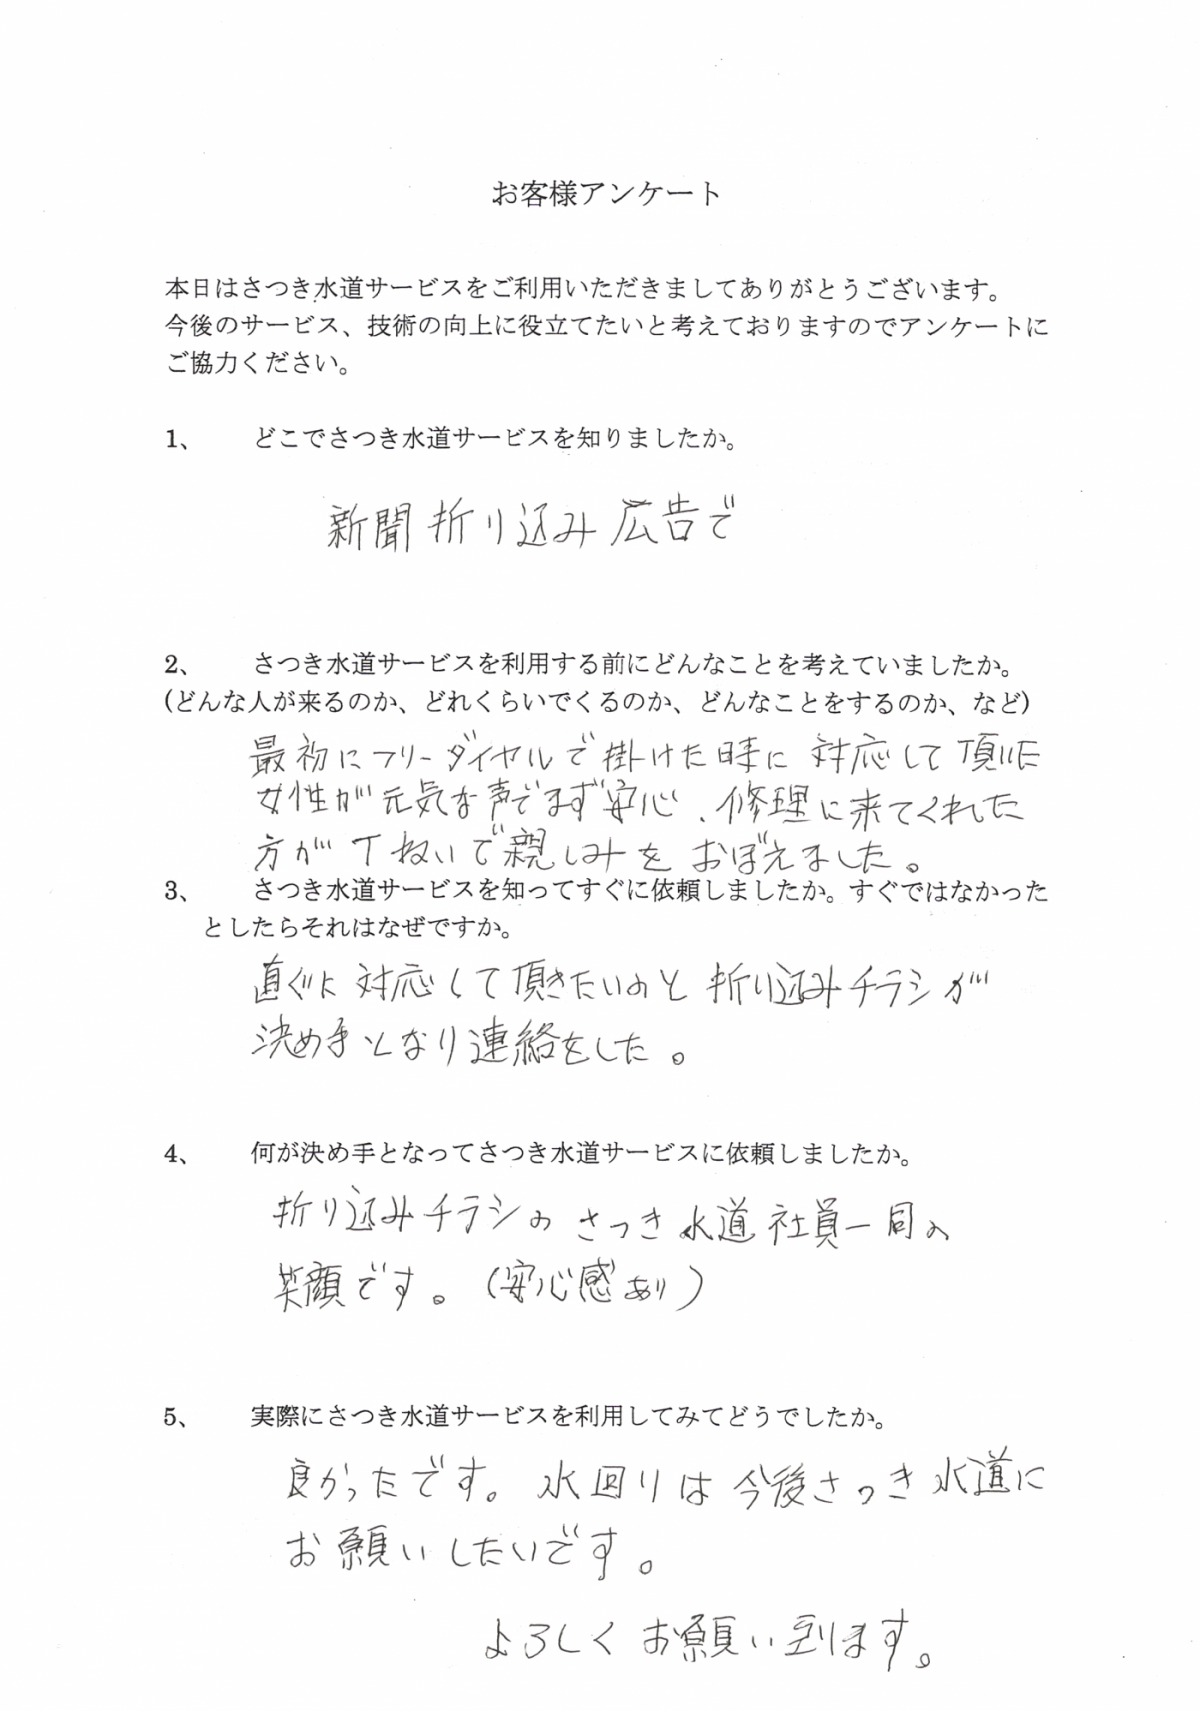 お客様アンケート
本日はさつき水道サービスをご利用いただきましてありがとうございます。
今後のサービス、技術の向上に役立てたいと考えておりますのでアンケートに
ご協力ください。
1、 どこでさつき水道サービスを知りましたか。
新聞折り込み広告で
2、 さつき水道サービスを利用する前にどんなことを考えていましたか。
(どんな人が来るのか、どれくらいでくるのか、どんなことをするのか、など)
最初にフリーダイヤルで掛けた時に対応して頂いた
女性が元気な声でまず安心、修理に来てくれた
方が丁ねいで親しみをおぼえました。
3、 さつき水道サービスを知ってすぐに依頼しましたか。すぐではなかった
としたらそれはなぜですか。
直ぐに対応して頂きたいのと折り込みチラシが
決め手となり連絡をした。
4、 何が決め手となってさつき水道サービスに依頼しましたか。
折り込みチラシのさつき水道社員一同の
笑顔です。(安心感あり)
5、 実際にさつき水道サービスを利用してみてどうでしたか。
良かったです。水回りは今後さつき水道に
お願いしたいです。
よろしくお願い致します。